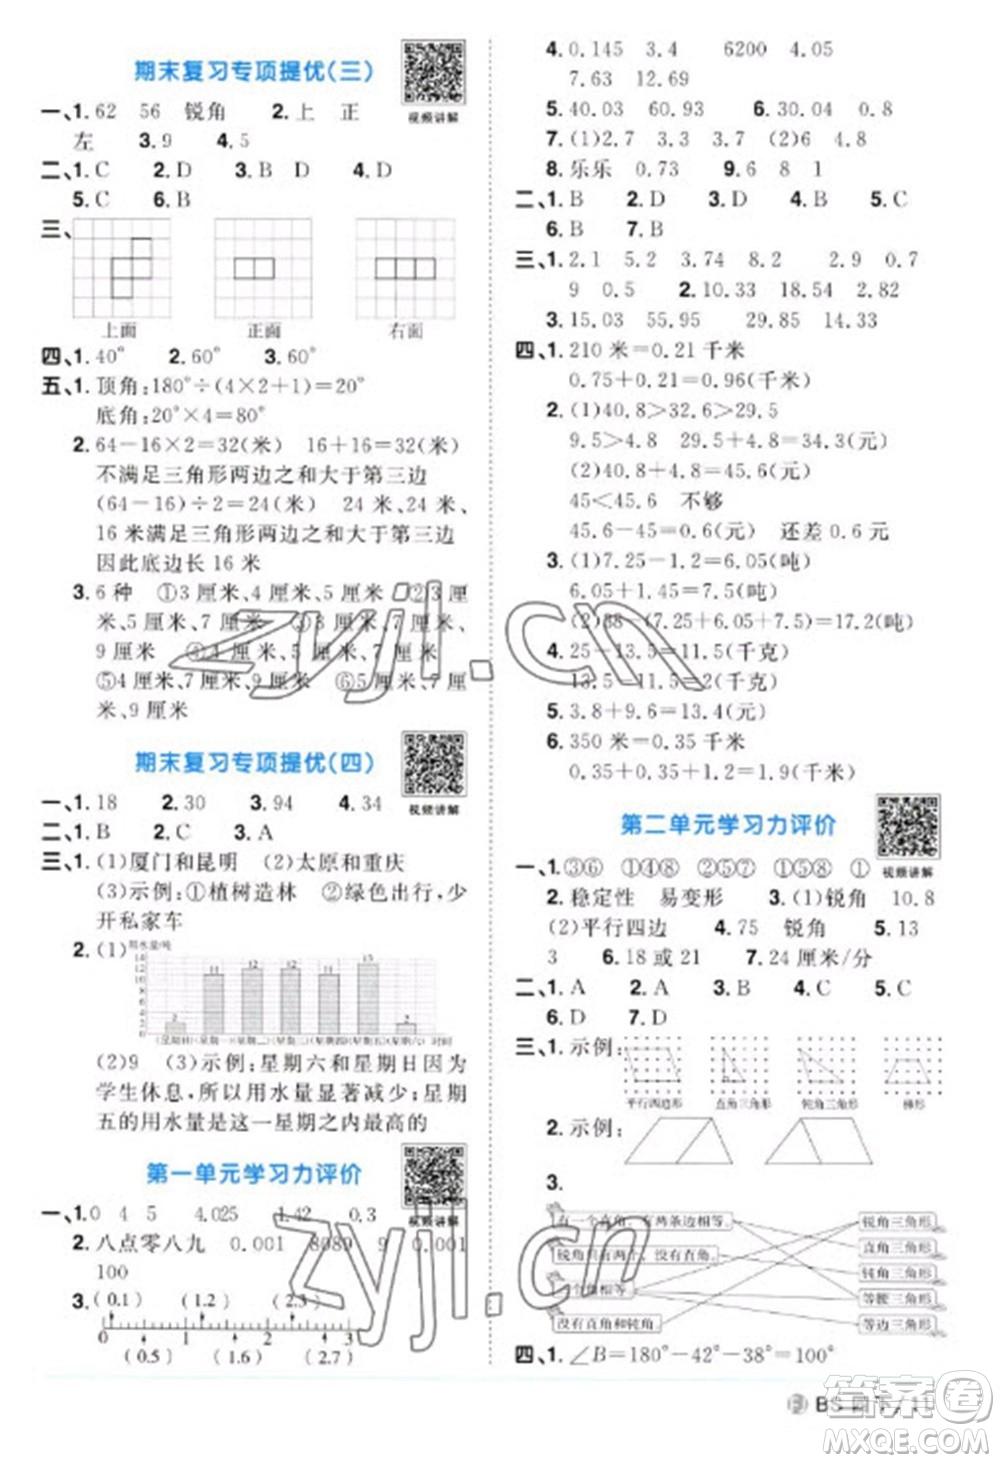 期末复习专项提优(三)
视频讲解
一、1. 62 56 锐角 2. 上 正
左 3. 9 4. 5
二、1. C 2. D 3. B D 4. D
5. C 6. B
三、
上面 正面 右面
四、1. 40° 2. 60° 3. 60°
五、1. 顶角:180°÷(4×2+1)=20°
底角:20°×4=80°
2. 64-16×2=32(米) 16+16=32(米)
不满足三角形两边之和大于第三边
(64-16)÷2=24(米) 24 米、24 米、
16 米满足三角形两边之和大于第三边
因此底边长 16 米
3. 6 种 ①3 厘米、4 厘米、5 厘米 ②3 厘
米、5 厘米、7 厘米 ③3 厘米、7 厘米、
9 厘米 ④4 厘米、5 厘米、7 厘米
⑤4 厘米、7 厘米、9 厘米 ⑥5 厘米、7 厘
米、9 厘米
期末复习专项提优(四)
视频讲解
一、1. 18 2. 30 3. 94 4. 34
二、1. B 2. C 3. A
三、1. (1)厦门和昆明 (2)太原和重庆
(3)示例:①植树造林 ②绿色出行,少
开私家车
2. (1) 用水量/吨
14 12 10 8 6 4 2 0
2 11 12 12 11 13 2
(星期日)(星期一)(星期二)(星期三)(星期四)(星期五)(星期六) 时间
(2)9 (3)示例:星期六和星期日因为
学生休息,所以用水量显著减少;星期
五的用水量是这一星期之内最高的
第一单元学习力评价
视频讲解
一、1. 0 4 5 4.025 1.42 0.3
2. 八点零八九 0.001 8089 9 0.001
100
3. (0.1) (1.2) (2.3)
0 1 2 3
(0.5) (1.6) (2.7)
4. 0.145 3.4 6200 4.05
7.63 12.8
5. 40.03 60.93 6. > < > =
7. (1)2.7 3.3 (2)6 4.8
8. 乐乐 0.73 9. 6 8 1
二、1. B 2. D 3. D 4. B 5. C
6. B 7. B
三、1. 2.1 5.2 3.74 8.2 2.9 0.7
9 0.5 2. 10.33 18.54 2.82
3. 15.03 55.95 29.85 14.33
四、1. 210 米=0.21 千米
0.75+0.21=0.96(千米)
2. (1)40.8>32.6>29.5
9.5>4.8 29.5+4.8=34.3(元)
(2)40.8+4.8=45.6(元)
45<45.6 不够
45.6-45=0.6(元) 还差 0.6 元
3. (1)7.25-1.2=6.05(吨)
6.05+1.45=7.5(吨)
(2)38-(7.25+6.05+7.5)=17.2(吨)
4. 25-13.5=11.5(千克)
13.5-11.5=2(千克)
5. 3.8+9.6=13.4(元)
6. 350 米=0.35 千米
0.35+0.35+1.2=1.9(千米)
第二单元学习力评价
视频讲解
一、1. ③⑥ ①④⑧ ②⑤⑦ ①⑤⑧ ①
2. 稳定性 易变形 3. (1)锐角 10.8
(2)平行四边 4. 75 锐角 5. 13
3 6. 18 或 21 7. 24 厘米/分
二、1. A 2. A 3. B 4. A 5. C
6. D 7. D
三、1. 示例:
平行四边形 直角三角形 钝角三角形 梯形
2. 示例:
3.
有一个直角,有两条边相等。
锐角只有两个,没有直角。
没有直角和钝角。
锐角三角形
直角三角形
钝角三角形
等腰三角形
等边三角形
四、1. ∠B=180°-42°-38°=100°
BS 四下 / 11
zyjl.cn
zyjl.cn
答案圈
MXQE.COM